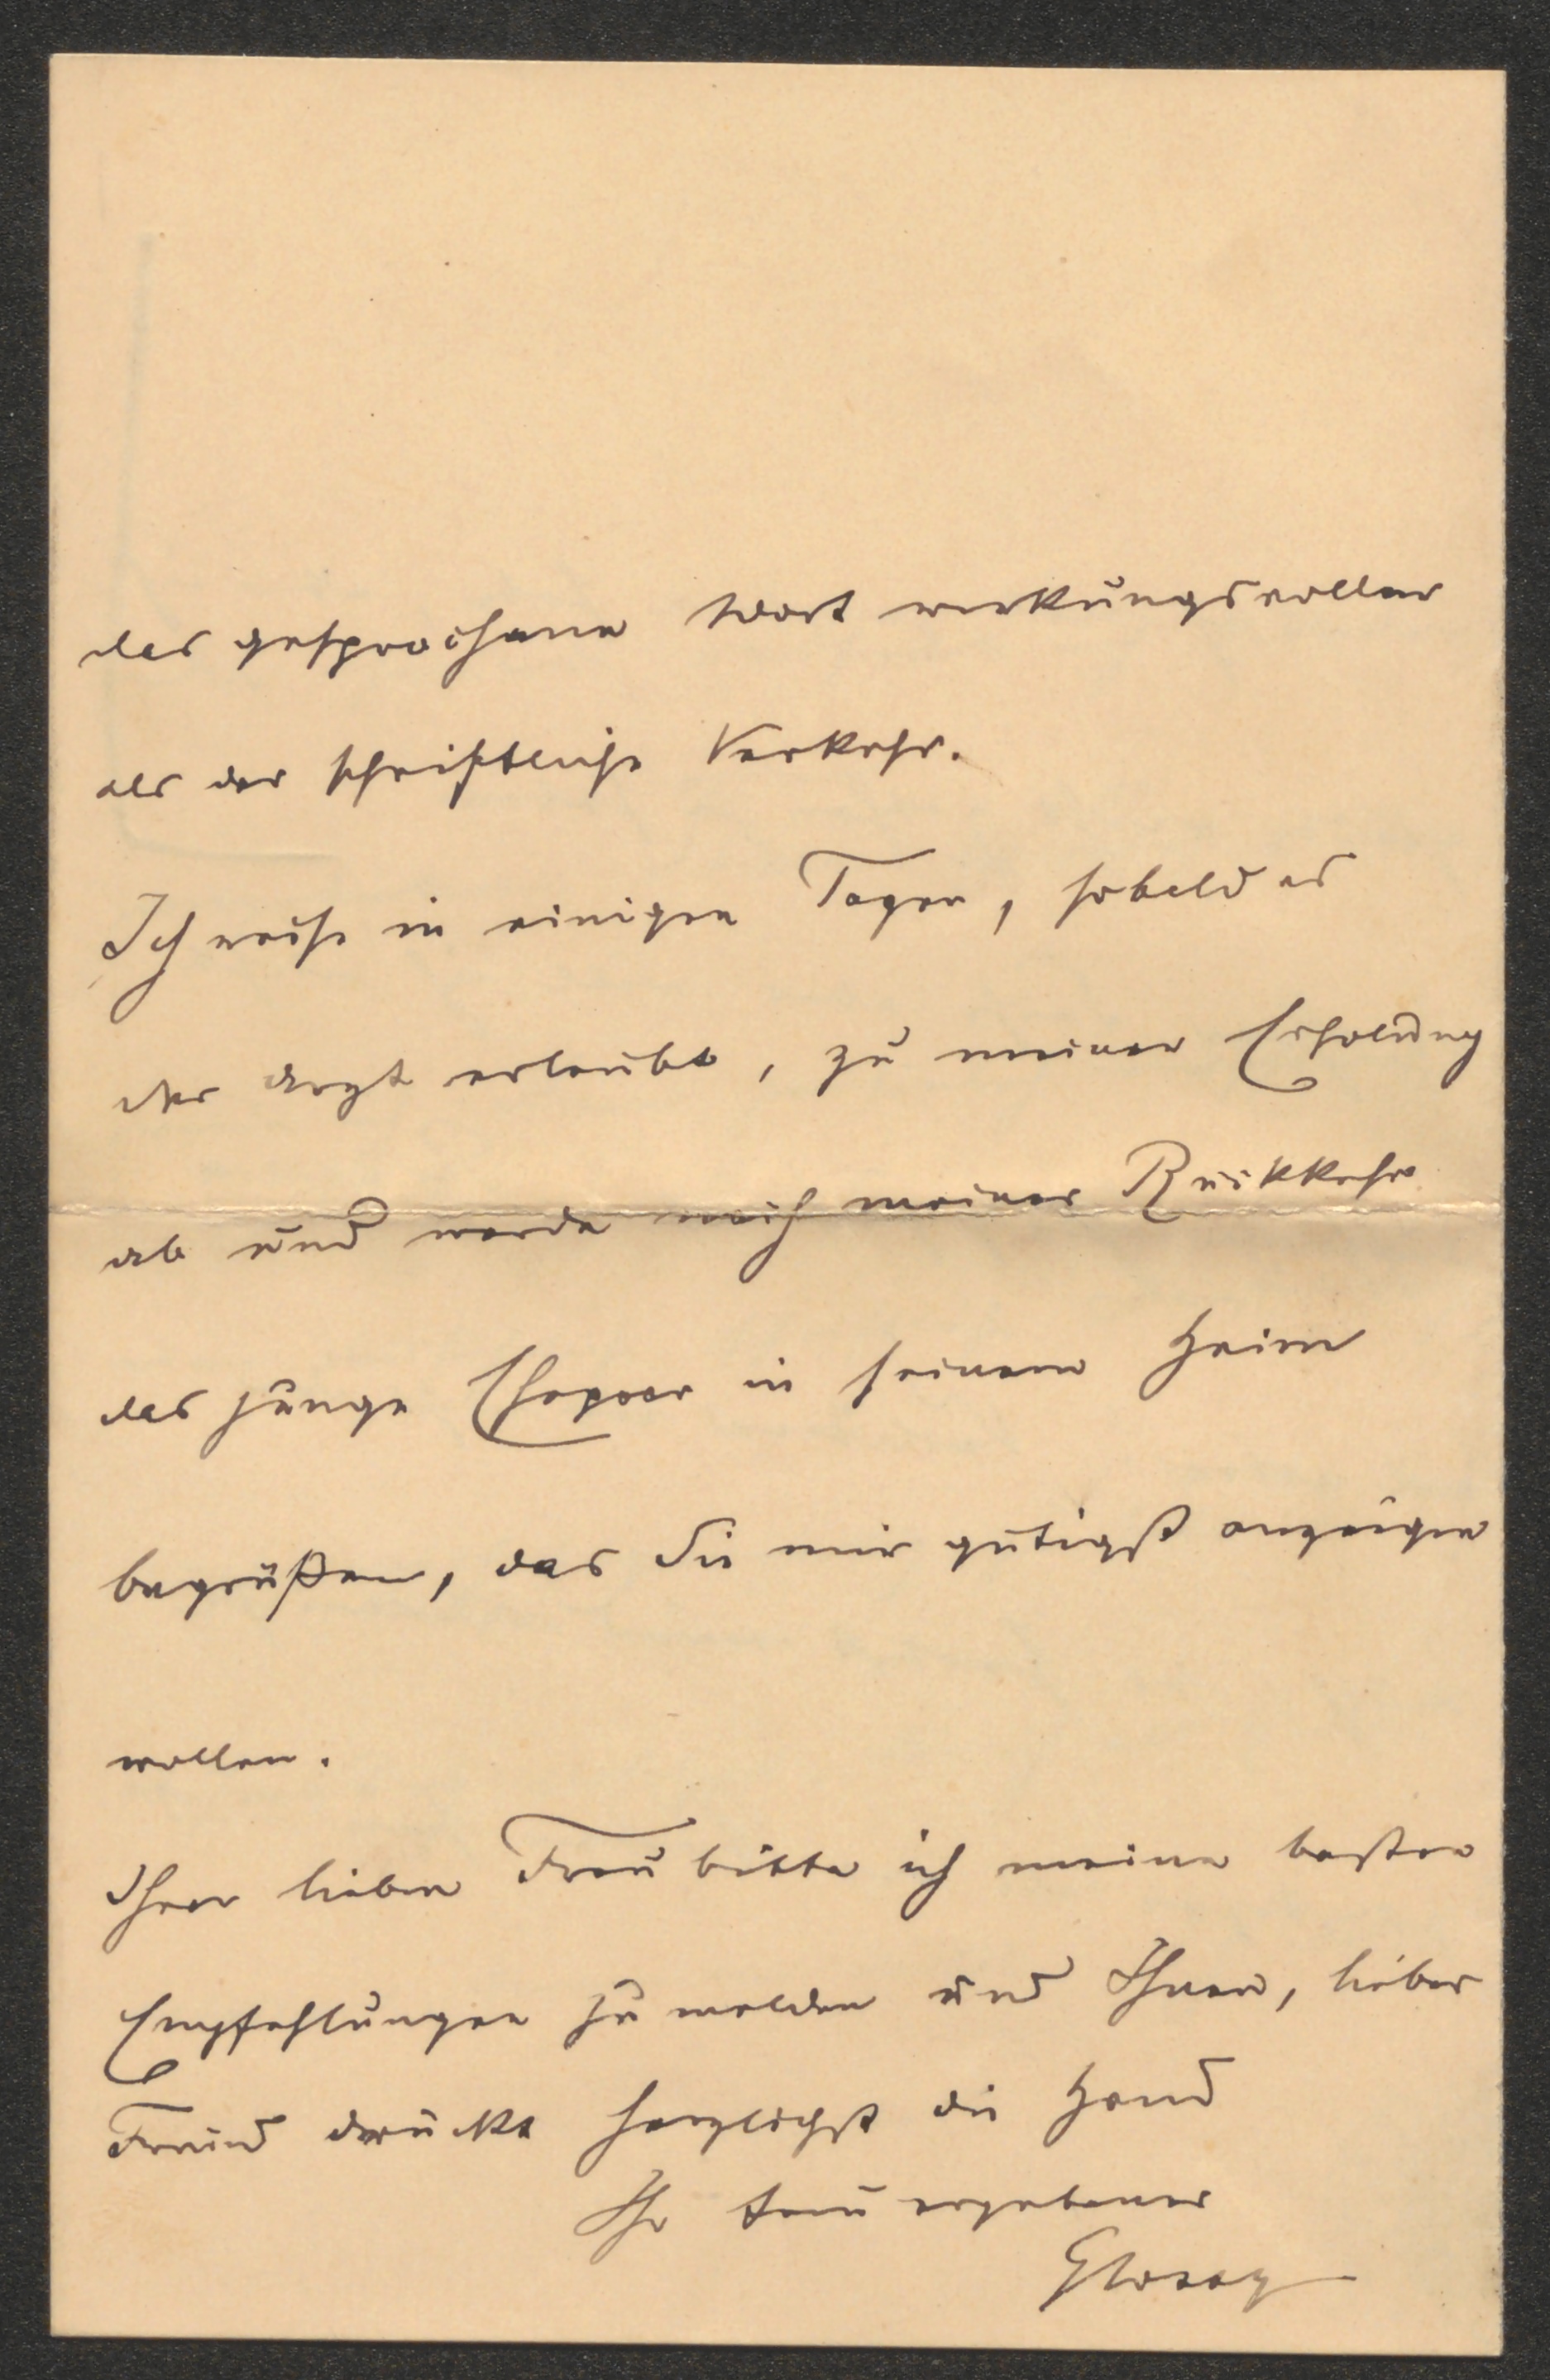 das gesprochene Wort wirkungsvoller
als der schriftliche Verkehr.
Ich reise in einigen Tagen, sobald es
der Arzt erlaubt, zu meiner Erholung
ab und werde nach meiner Rückkehr
das junge Ehepaar in seinem Heim
begrüßen, das Sie mir gütigst anzeigen
wollen.
Ihrer lieben Frau bitte ich meine besten
Empfehlungen zu melden und Ihnen, lieber
Freund drückt herzlichst die Hand
Ihr treu ergebener
Glossy